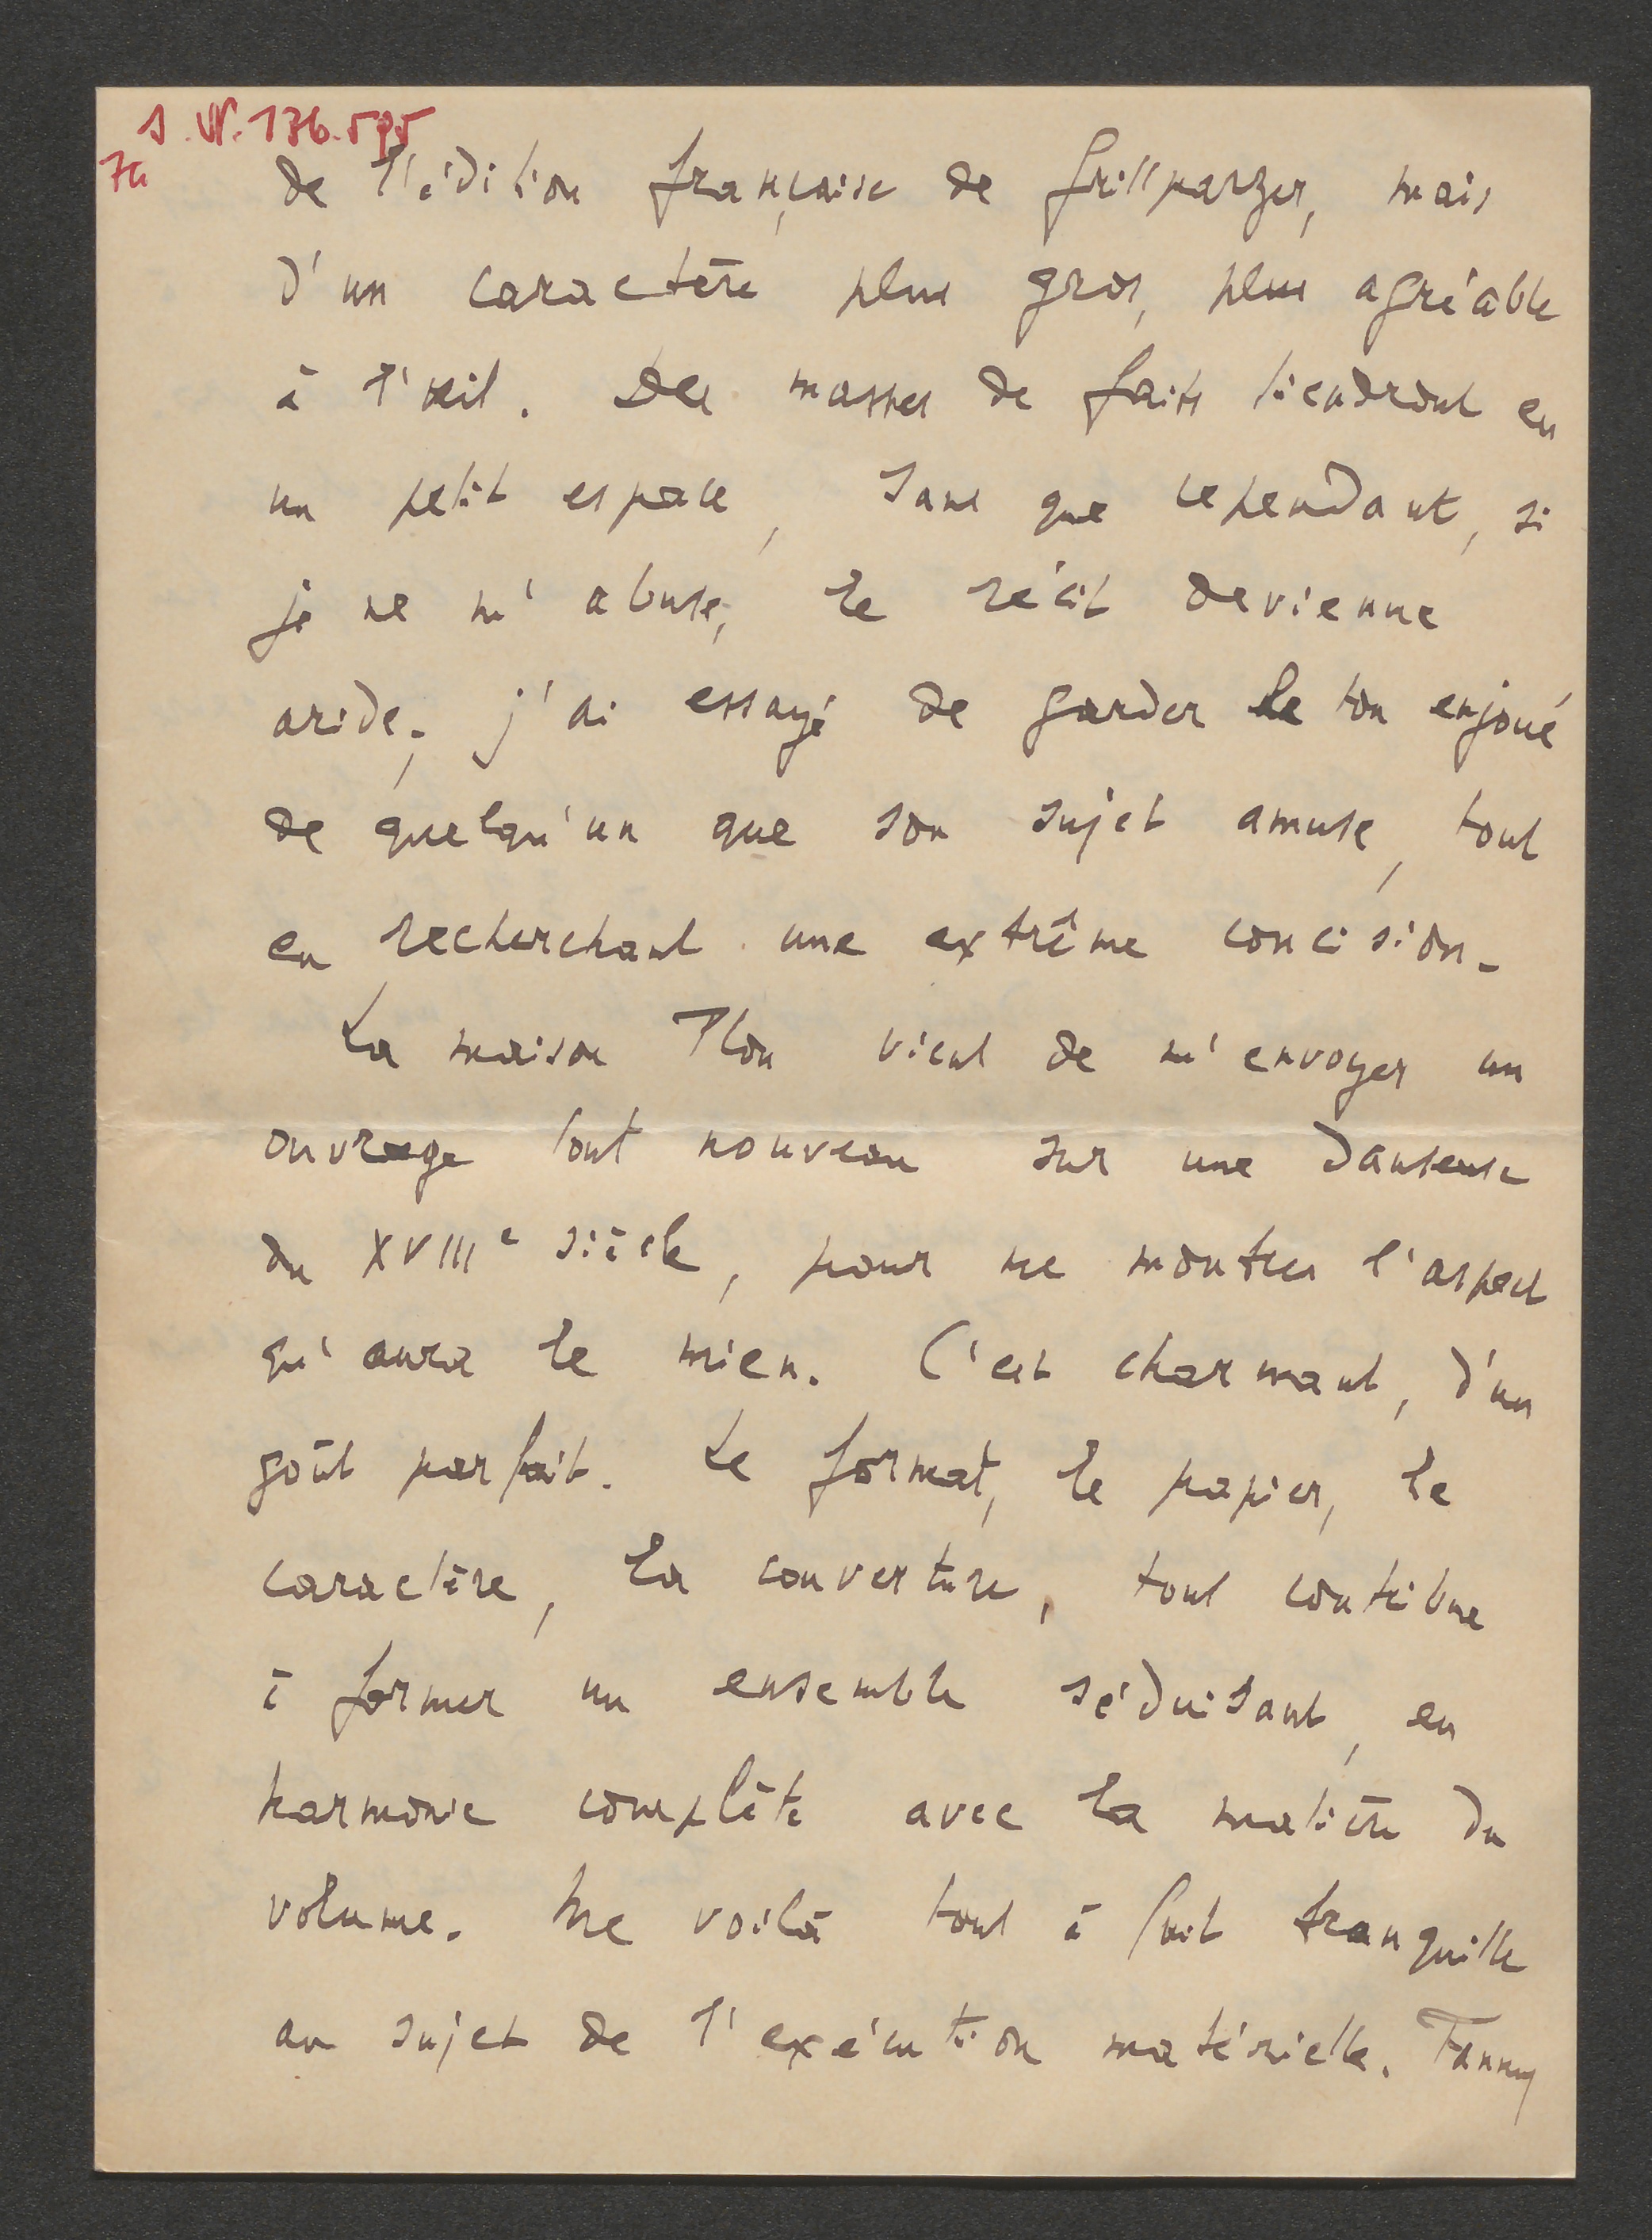 J.N. 136.595
7a
de l'édition française de Grillparzer, mais
d'un caractère plus gros, plus agréable
à l'œil. Des masses de faits tiendront en
un petit espace, sans que cependant, si
je ne m'abuse, le récit devienne
aride; j'ai essayé de garder le ton enjoué
de quelqu'un que son sujet amuse, tout
en recherchant une extrême concision.
La maison Plon vient de m'envoyer un
ouvrage tout nouveau sur une danseuse
du XVIIIe siècle, pour me montrer l'aspect
qu'aura le mien. C'est charmant, d'un
goût parfait. Le format, le papier, le
caractère, la couverture, tout contribue
à former un ensemble séduisant, en
harmonie complète avec la matière du
volume. Me voilà tout à fait tranquille
au sujet de l'exécution matérielle. Fanny